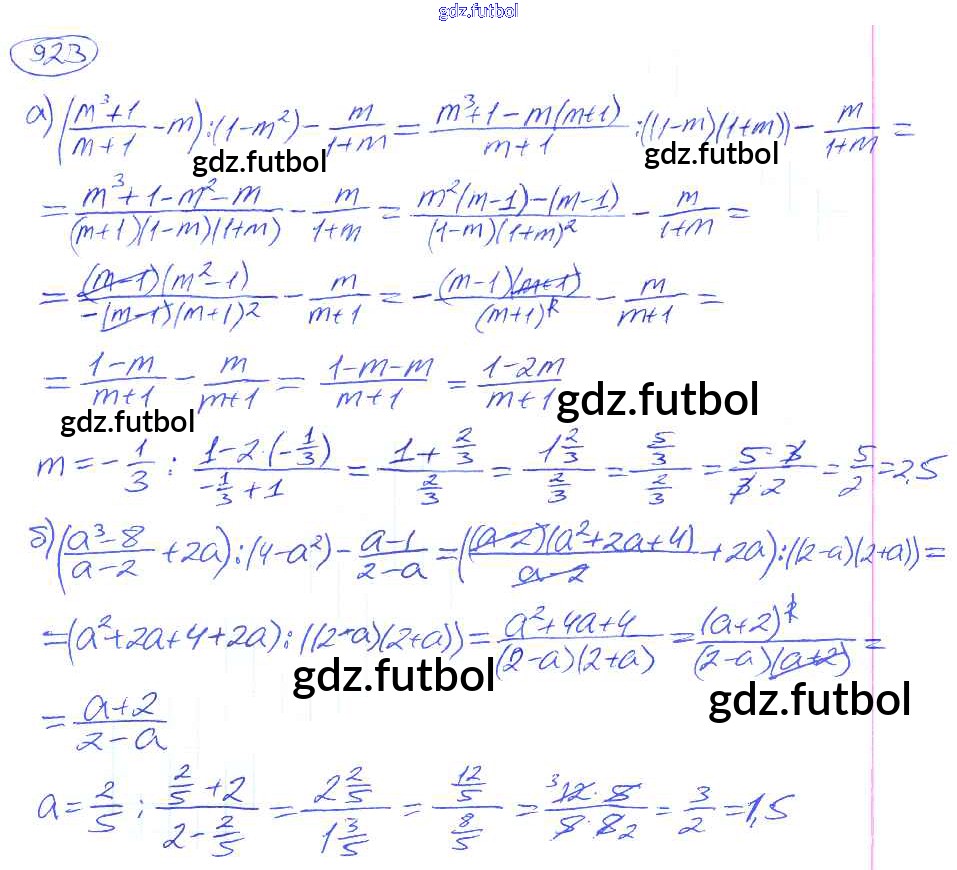 gdz.futbol
923
а) ((m³+1)/(m+1) - m) : (1-m²) - m/(1+m) = (m³+1-m(m+1))/(m+1) : ((1-m)(1+m)) - m/(1+m) =
gdz.futbol gdz.futbol
= (m³+1-m²-m)/((m+1)(1-m)(1+m)) - m/(1+m) = (m²(m-1)-(m-1))/((1-m)(1+m)²) - m/(1+m) =
= ((m-1)(m²-1))/(-(m-1)(m+1)²) - m/(m+1) = - ((m-1)(m+1))/(m+1)² - m/(m+1) =
= (1-m)/(m+1) - m/(m+1) = (1-m-m)/(m+1) = (1-2m)/(m+1)
gdz.futbol gdz.futbol
m = -1/3 ; (1-2·(-1/3))/(-1/3+1) = (1+2/3)/(2/3) = (1 2/3)/(2/3) = (5/3)/(2/3) = (5·3)/(3·2) = 5/2 = 2,5
б) ((a³-8)/(a-2) + 2a) : (4-a²) - (a-1)/(2-a) = (((a-2)(a²+2a+4))/(a-2) + 2a) : ((2-a)(2+a)) =
= (a²+2a+4+2a) : ((2-a)(2+a)) = (a²+4a+4)/((2-a)(2+a)) = (a+2)²/((2-a)(a+2)) =
gdz.futbol gdz.futbol
= (a+2)/(2-a)
a = 2/5 ; (2/5+2)/(2-2/5) = (2 2/5)/(1 3/5) = (12/5)/(8/5) = (³12·5)/(5·8 2) = 3/2 = 1,5